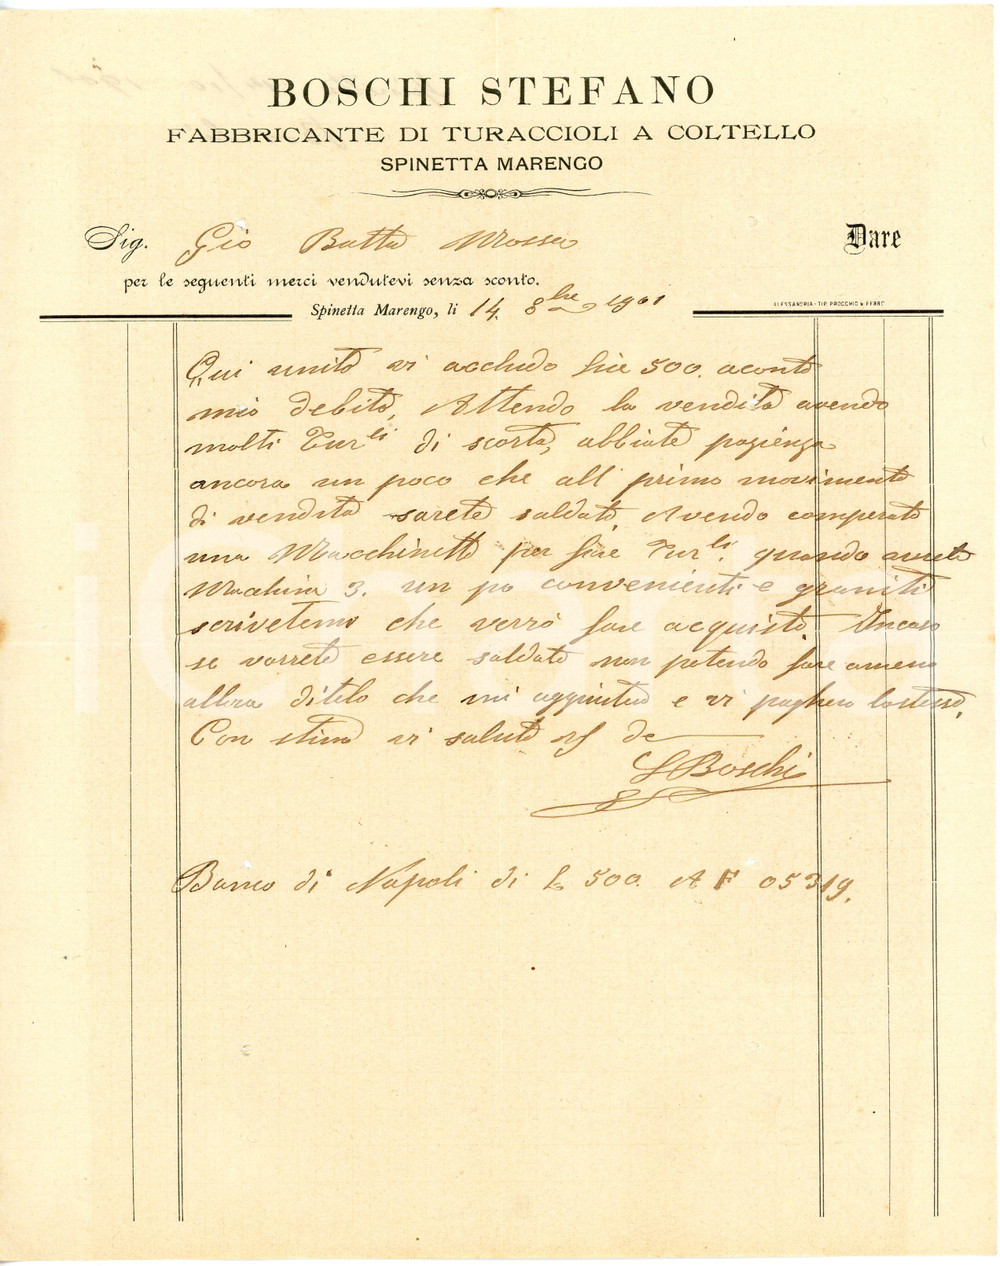 BOSCHI STEFANO
FABBRICANTE DI TURACCIOLI A COLTELLO
SPINETTA MARENGO
Sig. Gio Batta Mossa Dare
per le seguenti merci vendutevi senza sconto.
ALESSANDRIA - TIP. PROCCHIO & FERRO
Spinetta Marengo, li 14. 8bre 1901
Qui unito vi acchudo lire 500. aconto
mio debito, Attendo la vendita avendo
molti Turli di scorta, abbiate pazienza
ancora un poco che all primo movimento
di vendita sarete saldato. Avendo comperato
una Macchinetta per fare Turli. quando avete
Machina 3. un po convenienti e graniti
scrivetemi che verrò fare acquisto. Incaso
se vorrete essere saldato non potendo fare ameno
allora ditelo che mi aggiusterò e vi pagherò lostesso.
Con stima vi saluto
S Boschi
Banco di Napoli di L 500. A F 05319.
iCharta